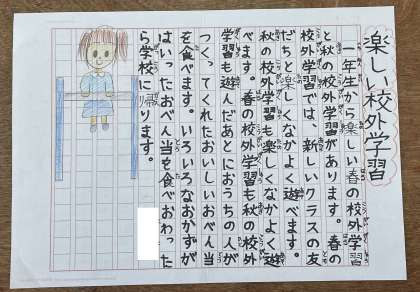 楽しい校外学習
一年生から楽しい春の校外学習
と秋の校外学習があります。春の
校外学習では、新しいクラスの友
だちと楽しくなかよく遊べます。
秋の校外学習も楽しくなかよく遊
べます。春の校外学習も秋の校外
学習も遊んだあとにおうちの人が
つくってくれたおいしいおべん当
を食べます。いろいろなおかずが
はいったおべん当を食べおわった
ら学校に帰ります。